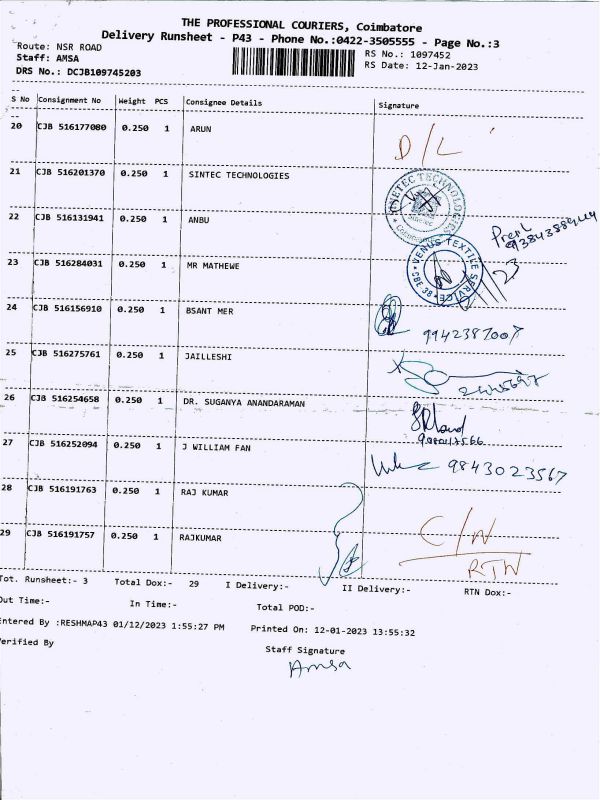 THE PROFESSIONAL COURIERS, Coimbatore
Delivery Runsheet - P43 - Phone No.:0422-3505555 - Page No.:3
Route: NSR ROAD
RS No.: 1097452
Staff: AMSA
RS Date: 12-Jan-2023
DRS No.: DCJB109745203
S No Consignment No Weight PCS Consignee Details Signature
20 CJB 516177080 0.250 1 ARUN D/L
21 CJB 516201370 0.250 1 SINTEC TECHNOLOGIES
22 CJB 516131941 0.250 1 ANBU
VENUS TEXTILE SERVICE
CBE-38
23 CJB 516284031 0.250 1 MR MATHEWE
24 CJB 516156910 0.250 1 BSANT MER 9942387007
25 CJB 516275761 0.250 1 JAILLESHI
26 CJB 516254658 0.250 1 DR. SUGANYA ANANDARAMAN
27 CJB 516252094 0.250 1 J WILLIAM FAN 9843023567
28 CJB 516191763 0.250 1 RAJ KUMAR
29 CJB 516191757 0.250 1 RAJKUMAR C/N
RTN
Tot. Runsheet:- 3 Total Dox:- 29 I Delivery:- II Delivery:- RTN Dox:-
Out Time:- In Time:- Total POD:-
Entered By :RESHMAP43 01/12/2023 1:55:27 PM Printed On: 12-01-2023 13:55:32
Verified By Staff Signature
Amsa